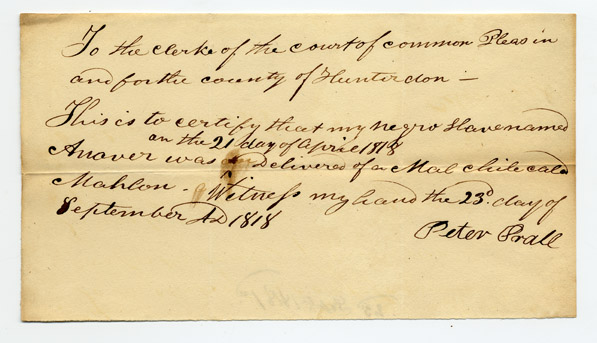 To the clerke of the court of common Pleas in
and for the county of Hunterdon —
This is to certify that my negro Slave named
on the 21 day of April 1818
Anaver was Delivered of a Mal chile cald
Mahlon. Witness my hand the 23d. day of
September AD 1818
Peter Prall